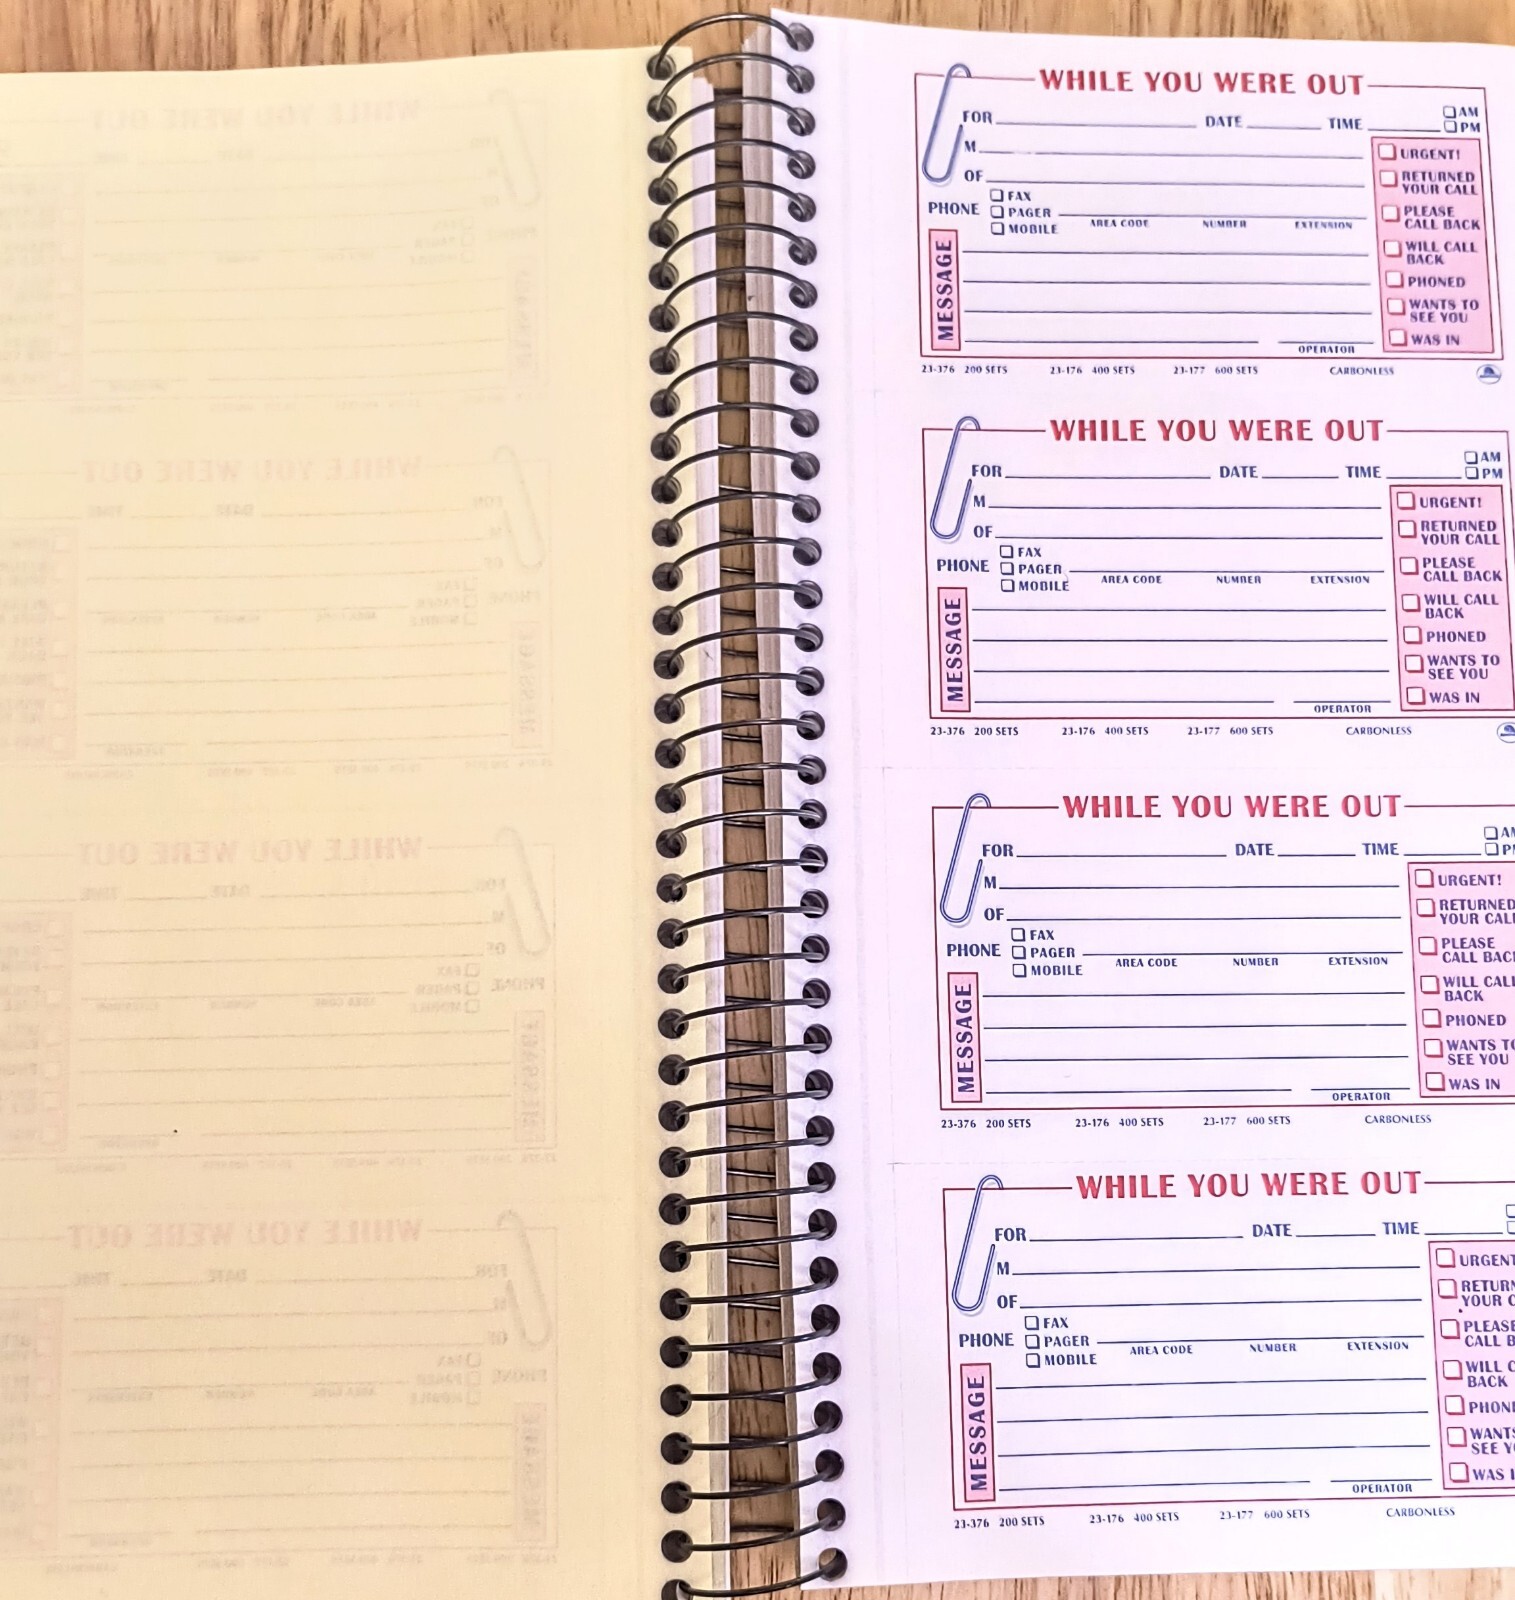 WHILE YOU WERE OUT
FOR DATE TIME AM
PM
M
OF
URGENT!
RETURNED
YOUR CALL
PHONE FAX
PAGER
MOBILE
AREA CODE NUMBER EXTENSION
PLEASE
CALL BACK
WILL CALL
BACK
PHONED
WANTS TO
SEE YOU
WAS IN
MESSAGE
OPERATOR
23-376 200 SETS 23-176 400 SETS 23-177 600 SETS CARBONLESS
WHILE YOU WERE OUT
FOR DATE TIME AM
PM
M
OF
URGENT!
RETURNED
YOUR CALL
PHONE FAX
PAGER
MOBILE
AREA CODE NUMBER EXTENSION
PLEASE
CALL BACK
WILL CALL
BACK
PHONED
WANTS TO
SEE YOU
WAS IN
MESSAGE
OPERATOR
23-376 200 SETS 23-176 400 SETS 23-177 600 SETS CARBONLESS
WHILE YOU WERE OUT
FOR DATE TIME
M
OF
URGENT!
RETURNED
YOUR CALL
PHONE FAX
PAGER
MOBILE
AREA CODE NUMBER EXTENSION
PLEASE
CALL BACK
WILL CALL
BACK
PHONED
WANTS TO
SEE YOU
WAS IN
MESSAGE
OPERATOR
23-376 200 SETS 23-176 400 SETS 23-177 600 SETS CARBONLESS
WHILE YOU WERE OUT
FOR DATE TIME
M
OF
URGENT
RETURN
YOUR C
PHONE FAX
PAGER
MOBILE
AREA CODE NUMBER EXTENSION
PLEASE
CALL B
WILL C
BACK
PHON
WANTS
SEE Y
WAS I
MESSAGE
OPERATOR
23-376 200 SETS 23-176 400 SETS 23-177 600 SETS CARBONLESS